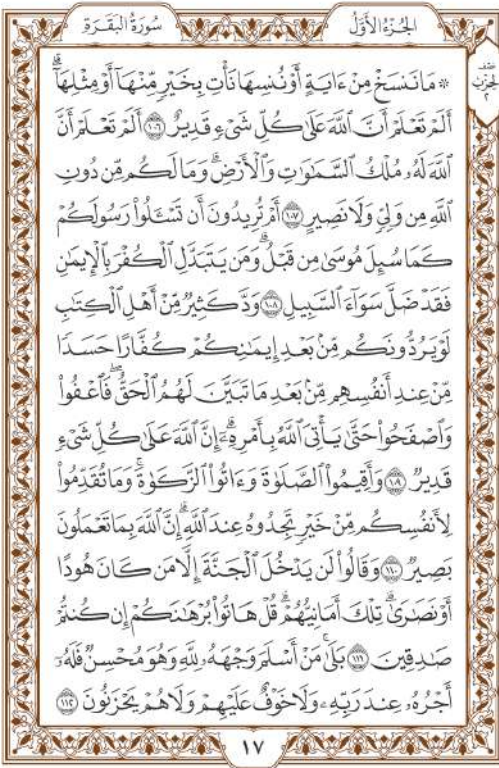 سُورَةُ البَقَرَةِ
الجُزْءُ الأَوَّلُ
نِصْفُ
الحِزْبِ
٢
۞ مَا نَنسَخْ مِنْ ءَايَةٍ أَوْ نُنسِهَا نَأْتِ بِخَيْرٍ مِّنْهَآ أَوْ مِثْلِهَآۗ
أَلَمْ تَعْلَمْ أَنَّ ٱللَّهَ عَلَىٰ كُلِّ شَىْءٍ قَدِيرٌ ١٠٦ أَلَمْ تَعْلَمْ أَنَّ
ٱللَّهَ لَهُۥ مُلْكُ ٱلسَّمَٰوَٰتِ وَٱلْأَرْضِۗ وَمَا لَكُم مِّن دُونِ
ٱللَّهِ مِن وَلِىٍّ وَلَا نَصِيرٍ ١٠٧ أَمْ تُرِيدُونَ أَن تَسْـَٔلُوا۟ رَسُولَكُمْ
كَمَا سُئِلَ مُوسَىٰ مِن قَبْلُۗ وَمَن يَتَبَدَّلِ ٱلْكُفْرَ بِٱلْإِيمَٰنِ
فَقَدْ ضَلَّ سَوَآءَ ٱلسَّبِيلِ ١٠٨ وَدَّ كَثِيرٌ مِّنْ أَهْلِ ٱلْكِتَٰبِ
لَوْ يَرُدُّونَكُم مِّنۢ بَعْدِ إِيمَٰنِكُمْ كُفَّارًا حَسَدًا
مِّنْ عِندِ أَنفُسِهِم مِّنۢ بَعْدِ مَا تَبَيَّنَ لَهُمُ ٱلْحَقُّۖ فَٱعْفُوا۟
وَٱصْفَحُوا۟ حَتَّىٰ يَأْتِىَ ٱللَّهُ بِأَمْرِهِۦٓۗ إِنَّ ٱللَّهَ عَلَىٰ كُلِّ شَىْءٍ
قَدِيرٌ ١٠٩ وَأَقِيمُوا۟ ٱلصَّلَوٰةَ وَءَاتُوا۟ ٱلزَّكَوٰةَۚ وَمَا تُقَدِّمُوا۟
لِأَنفُسِكُم مِّنْ خَيْرٍ تَجِدُوهُ عِندَ ٱللَّهِۗ إِنَّ ٱللَّهَ بِمَا تَعْمَلُونَ
بَصِيرٌ ١١٠ وَقَالُوا۟ لَن يَدْخُلَ ٱلْجَنَّةَ إِلَّا مَن كَانَ هُودًا
أَوْ نَصَٰرَىٰۗ تِلْكَ أَمَانِيُّهُمْۗ قُلْ هَاتُوا۟ بُرْهَٰنَكُمْ إِن كُنتُمْ
صَٰدِقِينَ ١١١ بَلَىٰ مَنْ أَسْلَمَ وَجْهَهُۥ لِلَّهِ وَهُوَ مُحْسِنٌ فَلَهُۥٓ
أَجْرُهُۥ عِندَ رَبِّهِۦ وَلَا خَوْفٌ عَلَيْهِمْ وَلَا هُمْ يَحْزَنُونَ ١١٢
١٧